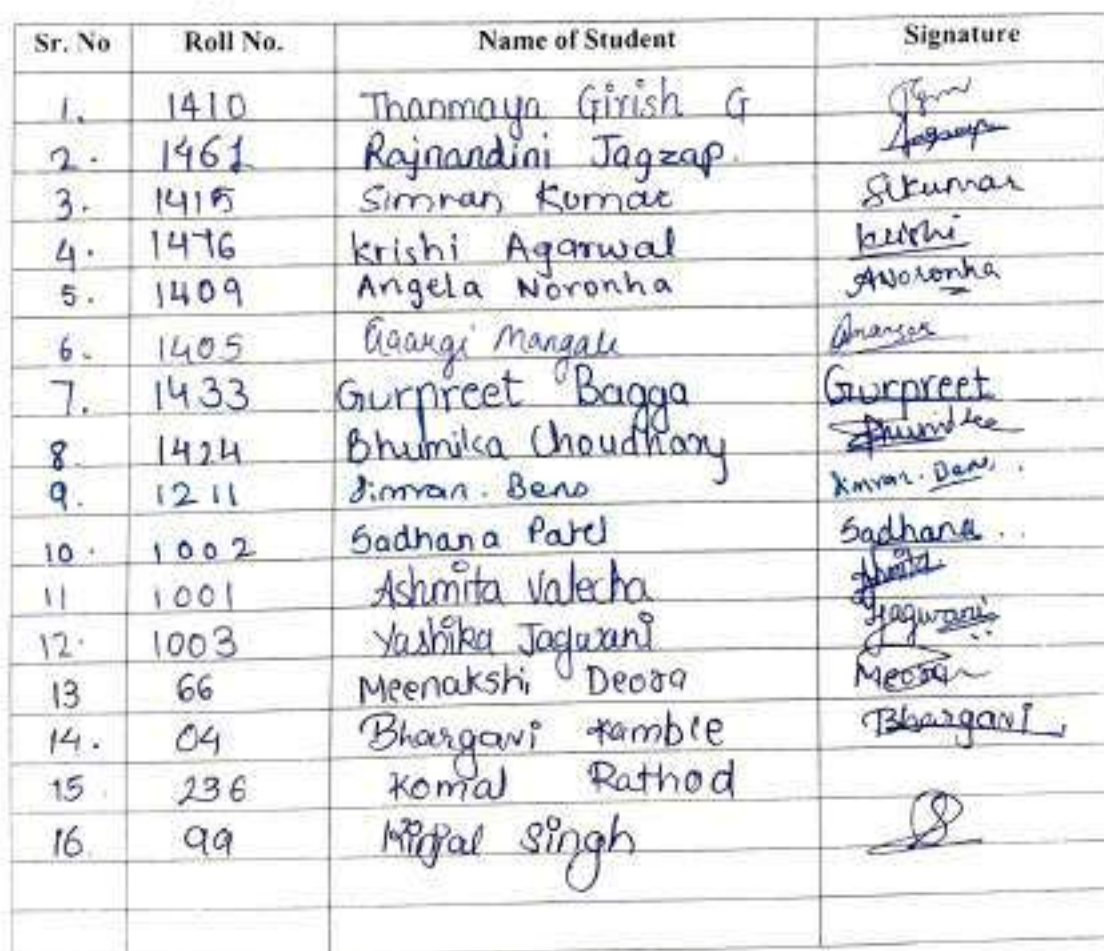 Sr. No Roll No. Name of Student Signature
1. 1410 Thanmaya Girish G
2. 1461 Rajnandini Jagzap.
3. 1415 Simran Kumar Sikumar
4. 1476 Krishi Agarwal krishi
5. 1409 Angela Noronha ANoronha
6. 1405 Gaargi Mangale
7. 1433 Gurpreet Bagga Gurpreet
8. 1424 Bhumika Choudhary Bhumika
9. 1211 Simran. Bens
10. 1002 Sadhana Patel Sadhana..
11 1001 Ashmita Valecha
12. 1003 Yashika Jagwani Yjagwani
13 66 Meenakshi Deora Meora
14. 04 Bhargavi Kamble Bhargavi
15. 236 Komal Rathod
16. 99 Singh